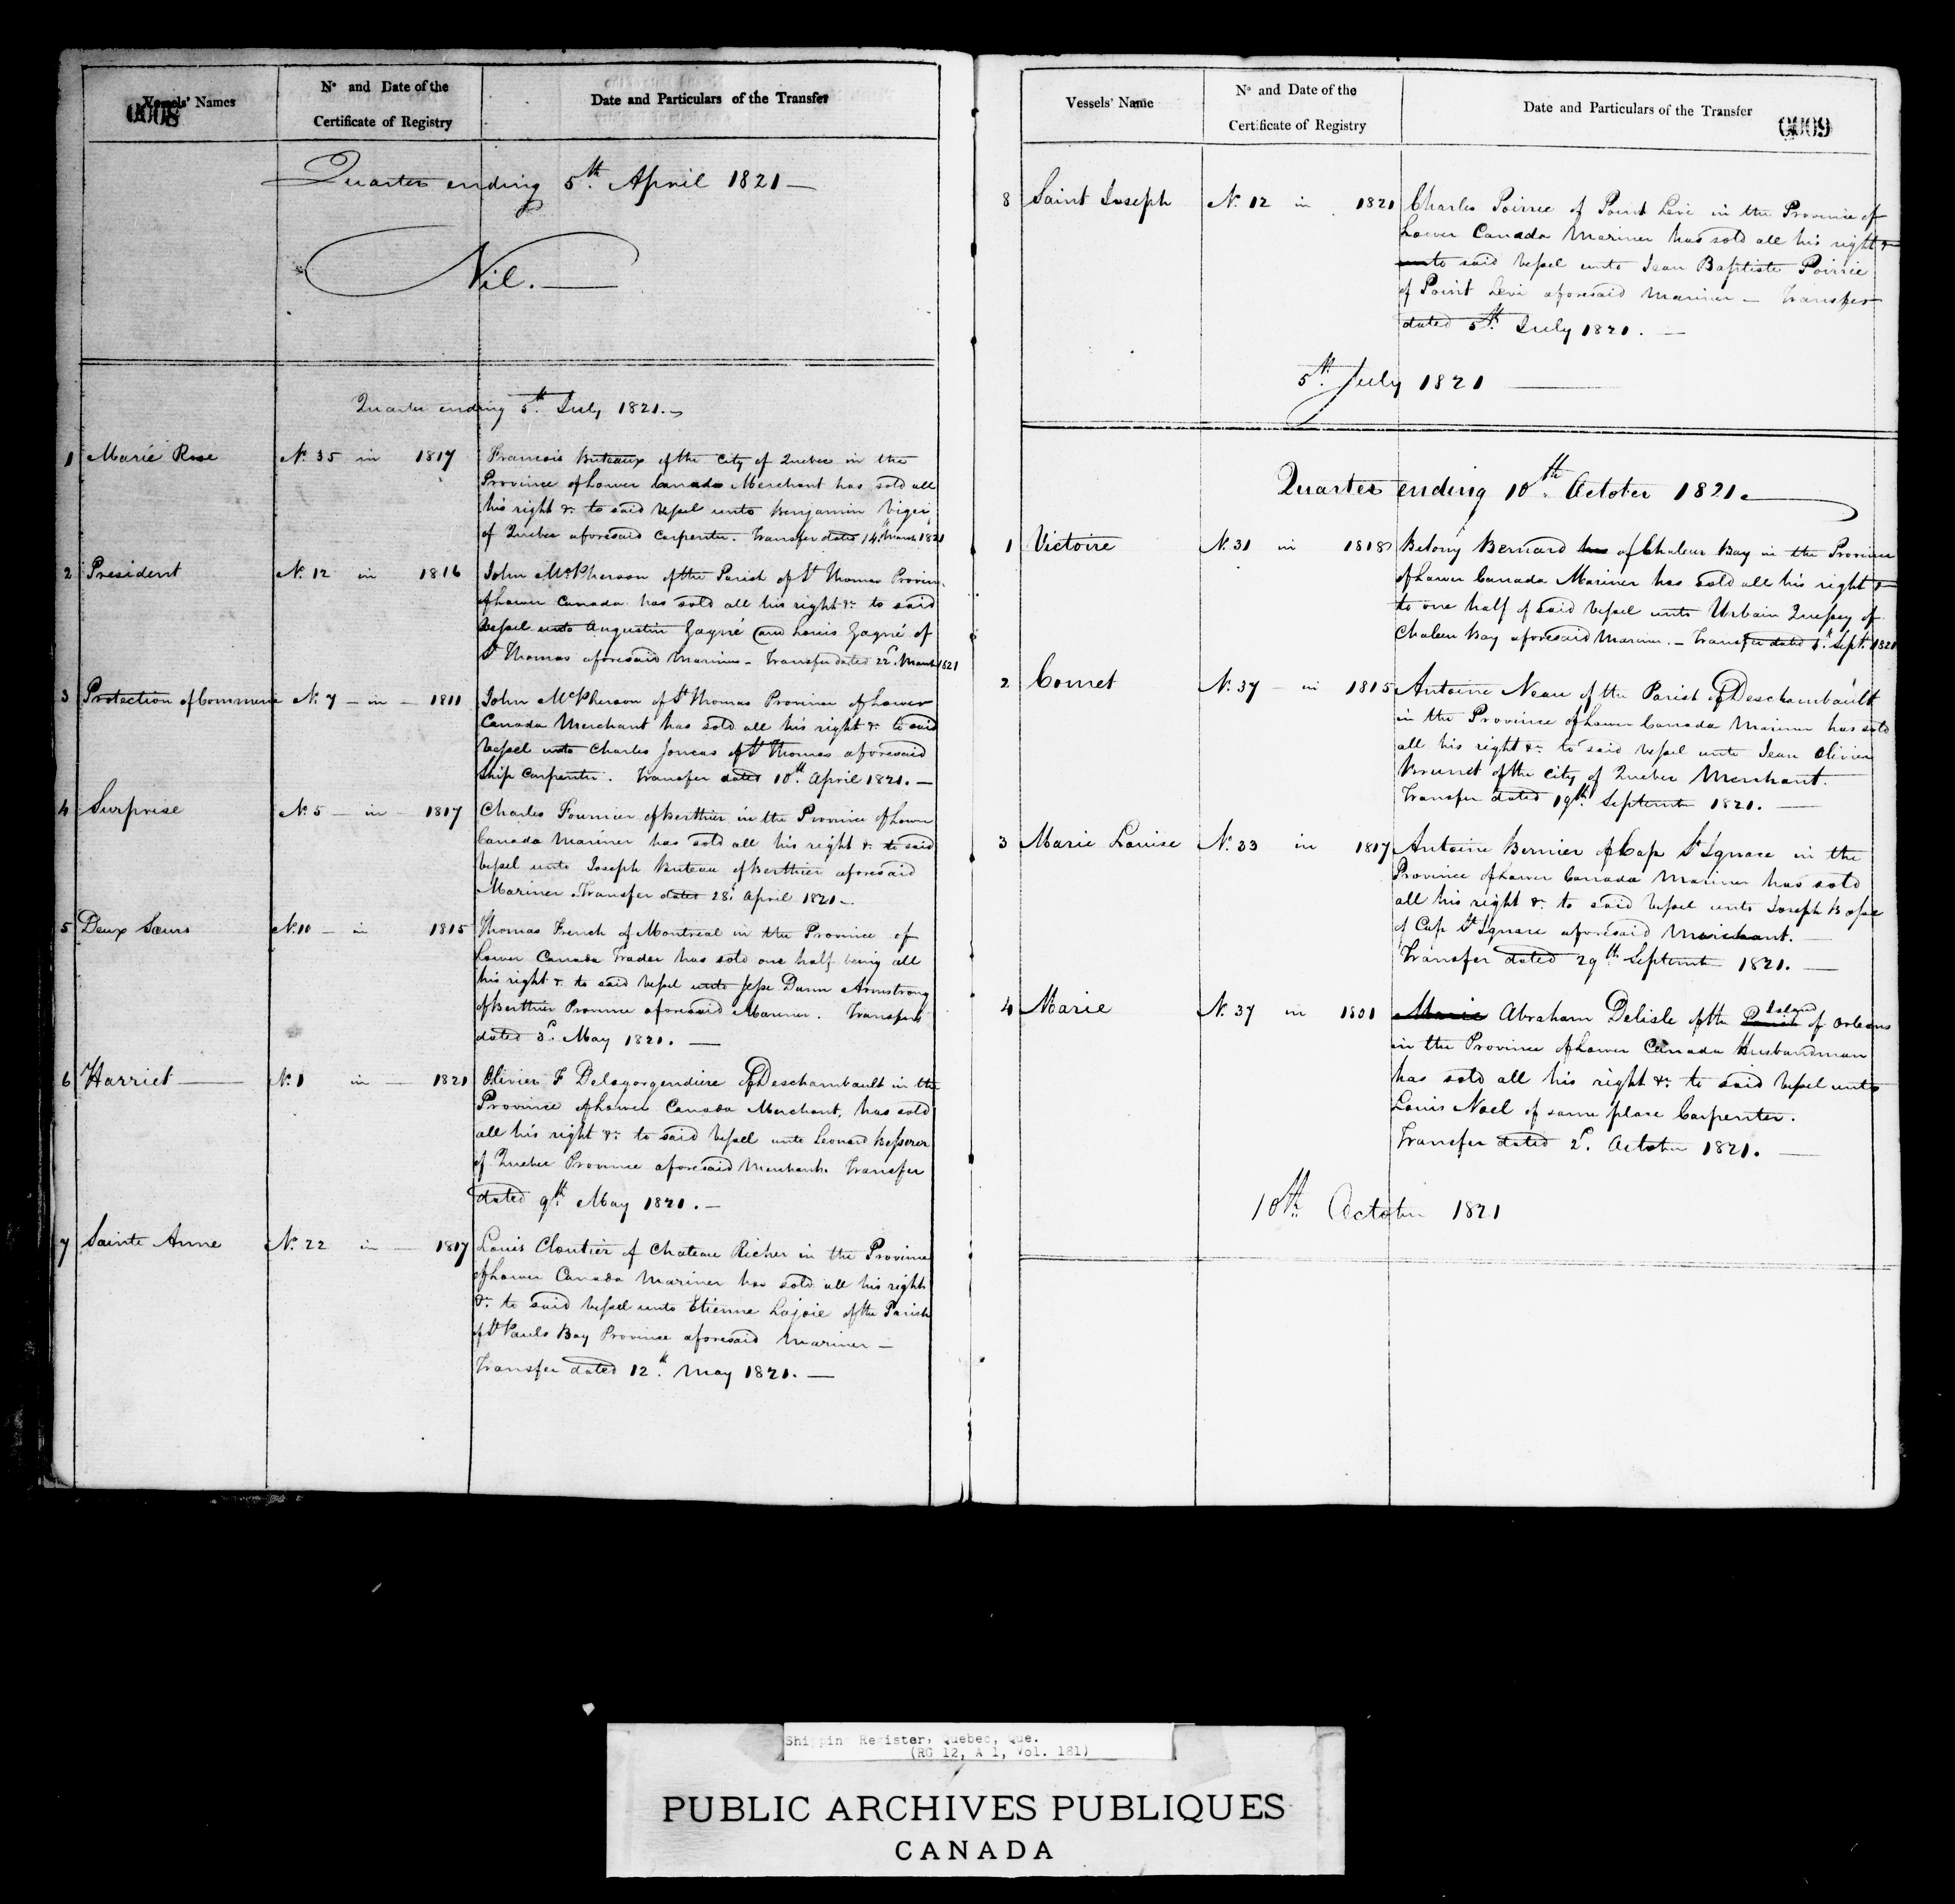 0008
Vessels' Names
No and Date of the
Certificate of Registry
Date and Particulars of the Transfer
Quarter ending 5th April 1821 —
Nil. —
Quarter ending 5th July 1821. —
1 Marie Rose No. 35 in 1817 Francois Buteaux of the City of Quebec in the
Province of Lower Canada Merchant has sold all
his right &c to said Vessel unto Benjamin Viger
of Quebec aforesaid Carpenter. Transfer dated 14th March 1821
2 President No. 12 in 1816 John McPherson of the Parish of St Thomas Province
of Lower Canada has sold all his right &c to said
Vessel unto Augustin Gagné and Louis Gagné of
St Thomas aforesaid Mariners - Transfer dated 22d March 1821
3 Protection of Commerce No. 7 — in — 1811 John McPherson of St Thomas Province of Lower
Canada Merchant has sold all his right &c to said
Vessel unto Charles Joncas of St Thomas aforesaid
Ship Carpenter. Transfer dated 10th April 1821. —
4 Surprise No. 5 — in — 1817 Charles Fournier of Berthier in the Province of Lower
Canada Mariner has sold all his right &c to said
Vessel unto Joseph Buteau of Berthier aforesaid
Mariner. Transfer dated 28th April 1821 —
5 Deux Sœurs No. 10 — in 1815 Thomas French of Montreal in the Province of
Lower Canada Trader has sold one half being all
his right &c to said Vessel unto Jesse Dunn Armstrong
of Berthier Province aforesaid Mariner. Transfer
dated 3d May 1821. —
6 Harriet — No. 1 in — 1821 Olivier F Delagorgendiere of Deschambault in the
Province of Lower Canada Merchant, has sold
all his right &c to said Vessel unto Leonard Besserer
of Quebec Province aforesaid Merchant. Transfer
dated 9th May 1821. —
7 Sainte Anne No. 22 in — 1817 Louis Cloutier of Chateau Richer in the Province
of Lower Canada Mariner has sold all his right
&c to said Vessel unto Etienne Lajoie of the Parish
of St Pauls Bay Province aforesaid Mariner —
Transfer dated 12th May 1821. —
Vessels' Name
No and Date of the
Certificate of Registry
Date and Particulars of the Transfer
0009
8 Saint Joseph No. 12 in 1821 Charles Poirree of Point Levi in the Province of
Lower Canada Mariner has sold all his right &c
unto said Vessel unto Jean Baptiste Poirrie
of Point Levi aforesaid Mariner — Transfer
dated 5th July 1821. —
5th July 1821 —
Quarter ending 10th October 1821. —
1 Victoire No. 31 in 1818 Belony Bernard has of Chaleur Bay in the Province
of Lower Canada Mariner has sold all his right &c
to one half of said Vessel unto Urbain Quessey of
Chaleur Bay aforesaid Mariner. — Transfer dated 4th Sept. 1821
2 Comet No. 37 — in 1815 Antoine Neau of the Parish of Deschambault
in the Province of Lower Canada Mariner has sold
all his right &c to said Vessel unto Jean Olivier
Brunet of the City of Quebec Merchant.
Transfer dated 19th September 1821. —
3 Marie Louise No. 33 in 1817 Antoine Bernier of Cap St Ignace in the
Province of Lower Canada Mariner has sold
all his right &c to said Vessel unto Joseph Bossé
of Cap St Ignace aforesaid Merchant. —
Transfer dated 29th September 1821. —
4 Marie No. 37 in 1801 Marie Abraham Delisle of the Parish Island of Orleans
in the Province of Lower Canada Husbandman
has sold all his right &c to said Vessel unto
Louis Noel of same place Carpenter.
Transfer dated 2d October 1821. —
10th October 1821
Shipping Register, Quebec, Que.
(RG 12, A 1, Vol. 181)
PUBLIC ARCHIVES PUBLIQUES
CANADA